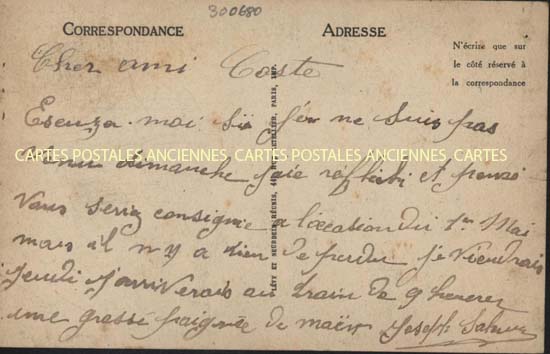 300680
CORRESPONDANCE
ADRESSE
N'écrire que sur
le côté réservé à
la correspondance
Cher ami Coste
Escuza moi si je ne suis pas
CARTES POSTALES ANCIENNES CARTES POSTALES ANCIENNES CARTES POSTALES ANCIENNES
venu dimanche jaie reflichi et pensé
Vous seriez consignie a l'ocation du 1er Mai
mais il n y a rien de perdu je viendrais
jeudi j'arriverais au train de 9 heures
une grosse poignée de main Joseph
LÉVY ET NEURDEIN RÉUNIS, 44, RUE LETELLIER, PARIS, IMP.